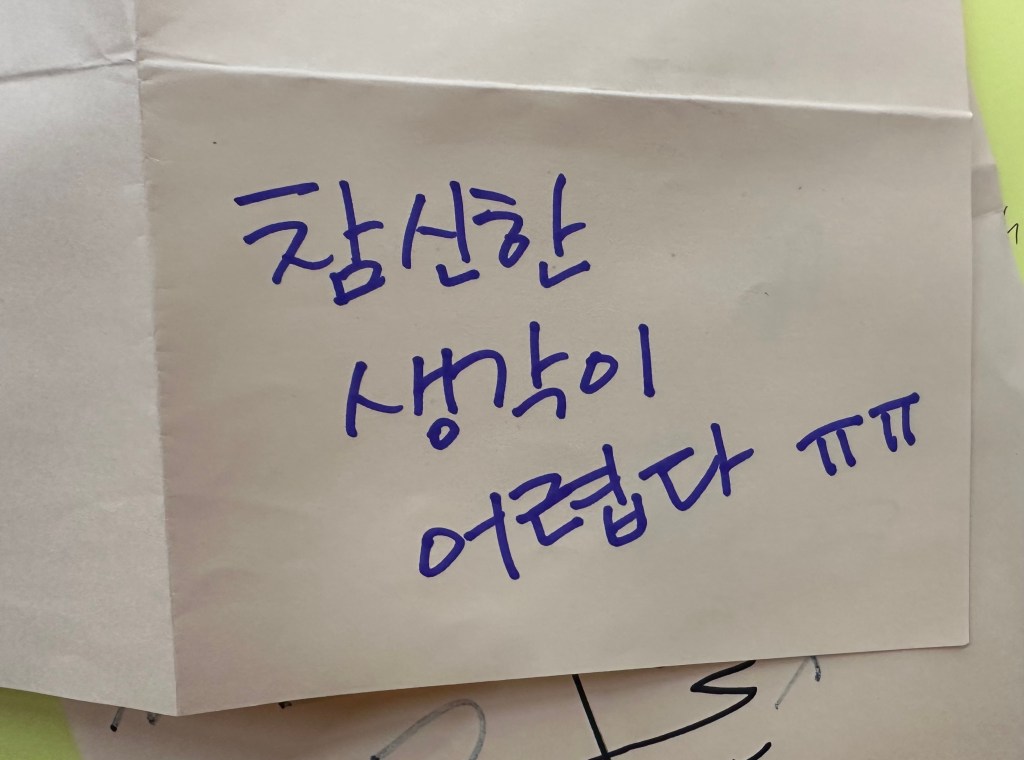 참신한
생각이
어렵다 ㅠㅠ